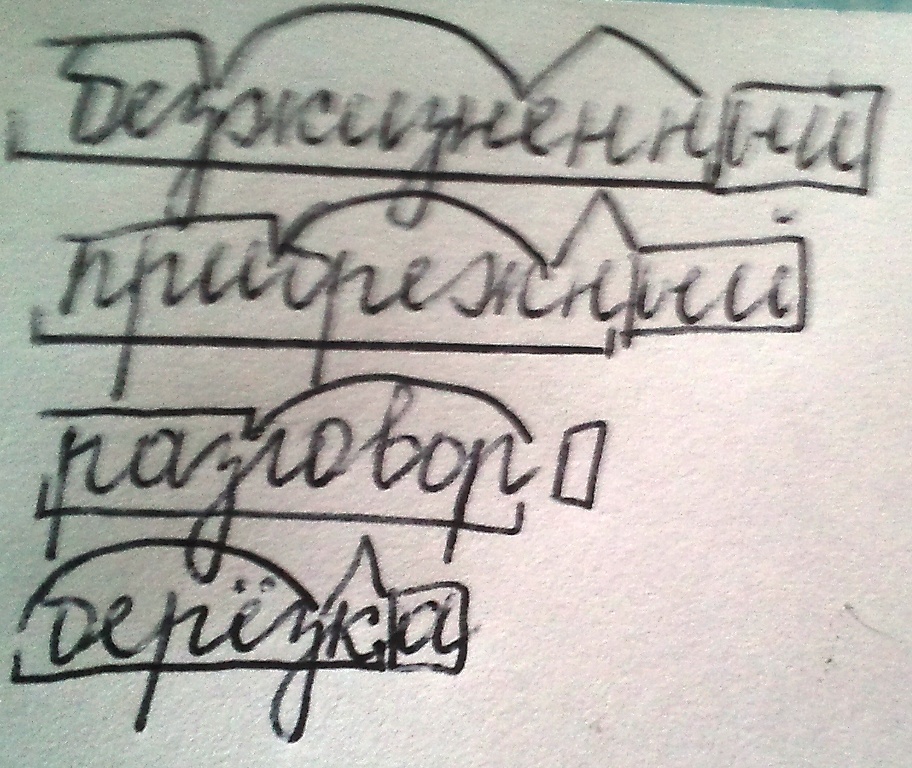 безжизненный
прибрежный
разговор
берёзка